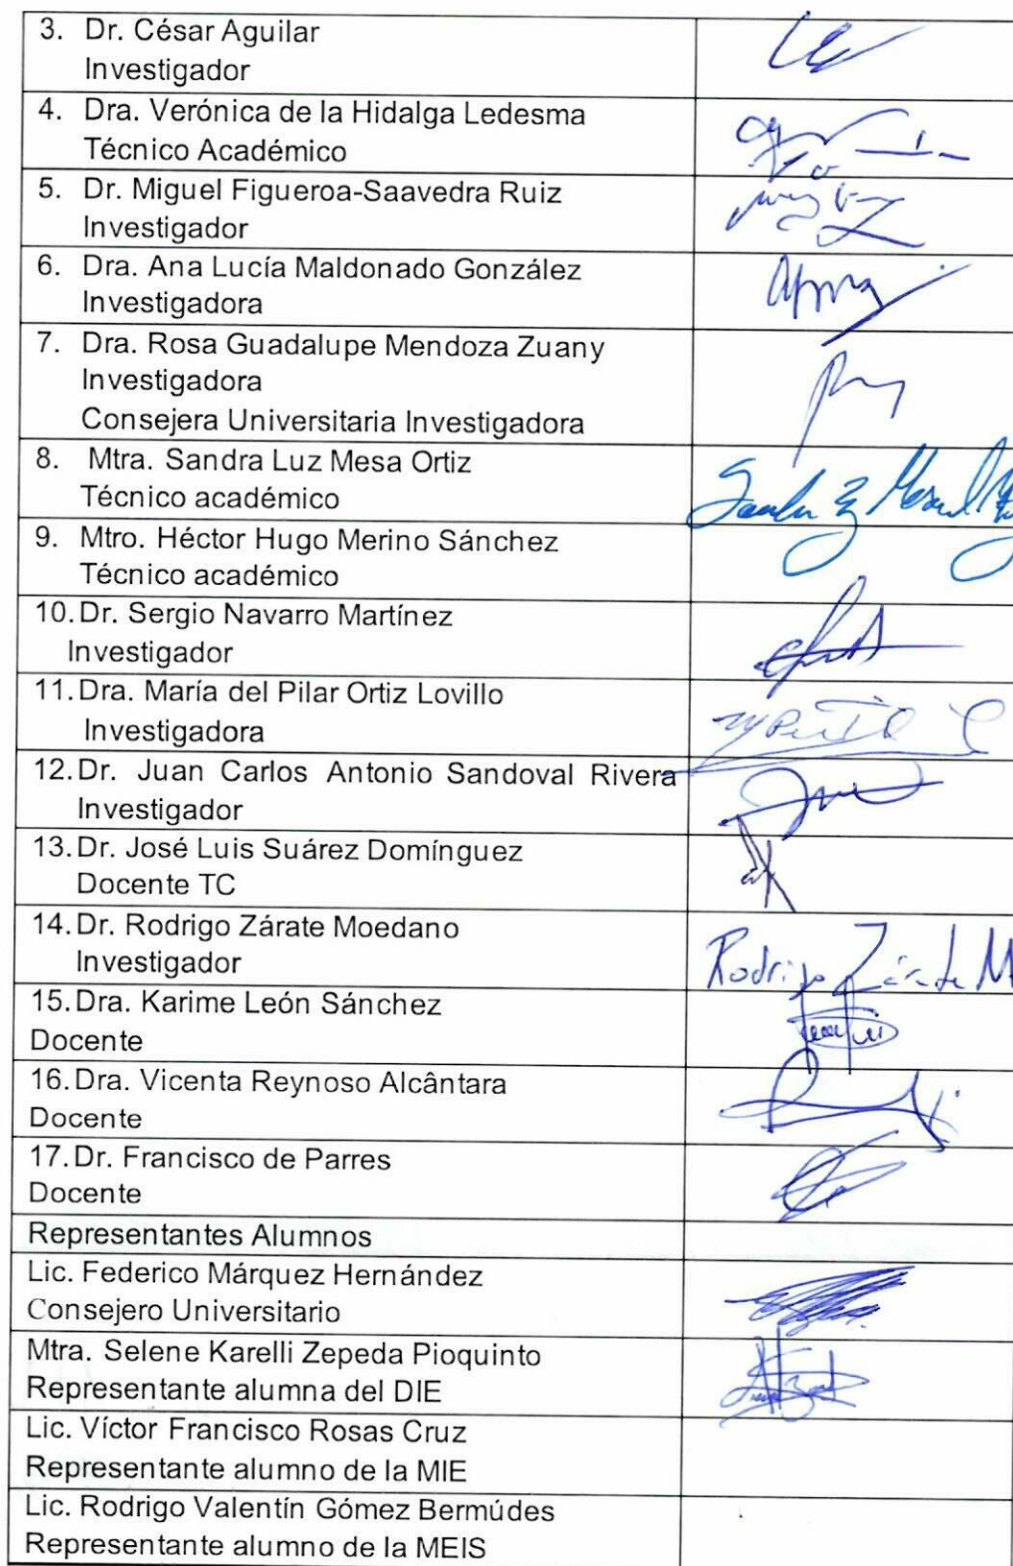 3. Dr. César Aguilar
Investigador
4. Dra. Verónica de la Hidalga Ledesma
Técnico Académico
5. Dr. Miguel Figueroa-Saavedra Ruiz
Investigador
6. Dra. Ana Lucía Maldonado González
Investigadora
7. Dra. Rosa Guadalupe Mendoza Zuany
Investigadora
Consejera Universitaria Investigadora
8. Mtra. Sandra Luz Mesa Ortiz
Técnico académico
9. Mtro. Héctor Hugo Merino Sánchez
Técnico académico
10. Dr. Sergio Navarro Martínez
Investigador
11. Dra. María del Pilar Ortiz Lovillo
Investigadora
12. Dr. Juan Carlos Antonio Sandoval Rivera
Investigador
13. Dr. José Luis Suárez Domínguez
Docente TC
14. Dr. Rodrigo Zárate Moedano
Investigador
Rodrigo Zárate M
15. Dra. Karime León Sánchez
Docente
16. Dra. Vicenta Reynoso Alcântara
Docente
17. Dr. Francisco de Parres
Docente
Representantes Alumnos
Lic. Federico Márquez Hernández
Consejero Universitario
Mtra. Selene Karelli Zepeda Pioquinto
Representante alumna del DIE
Lic. Víctor Francisco Rosas Cruz
Representante alumno de la MIE
Lic. Rodrigo Valentín Gómez Bermúdes
Representante alumno de la MEIS